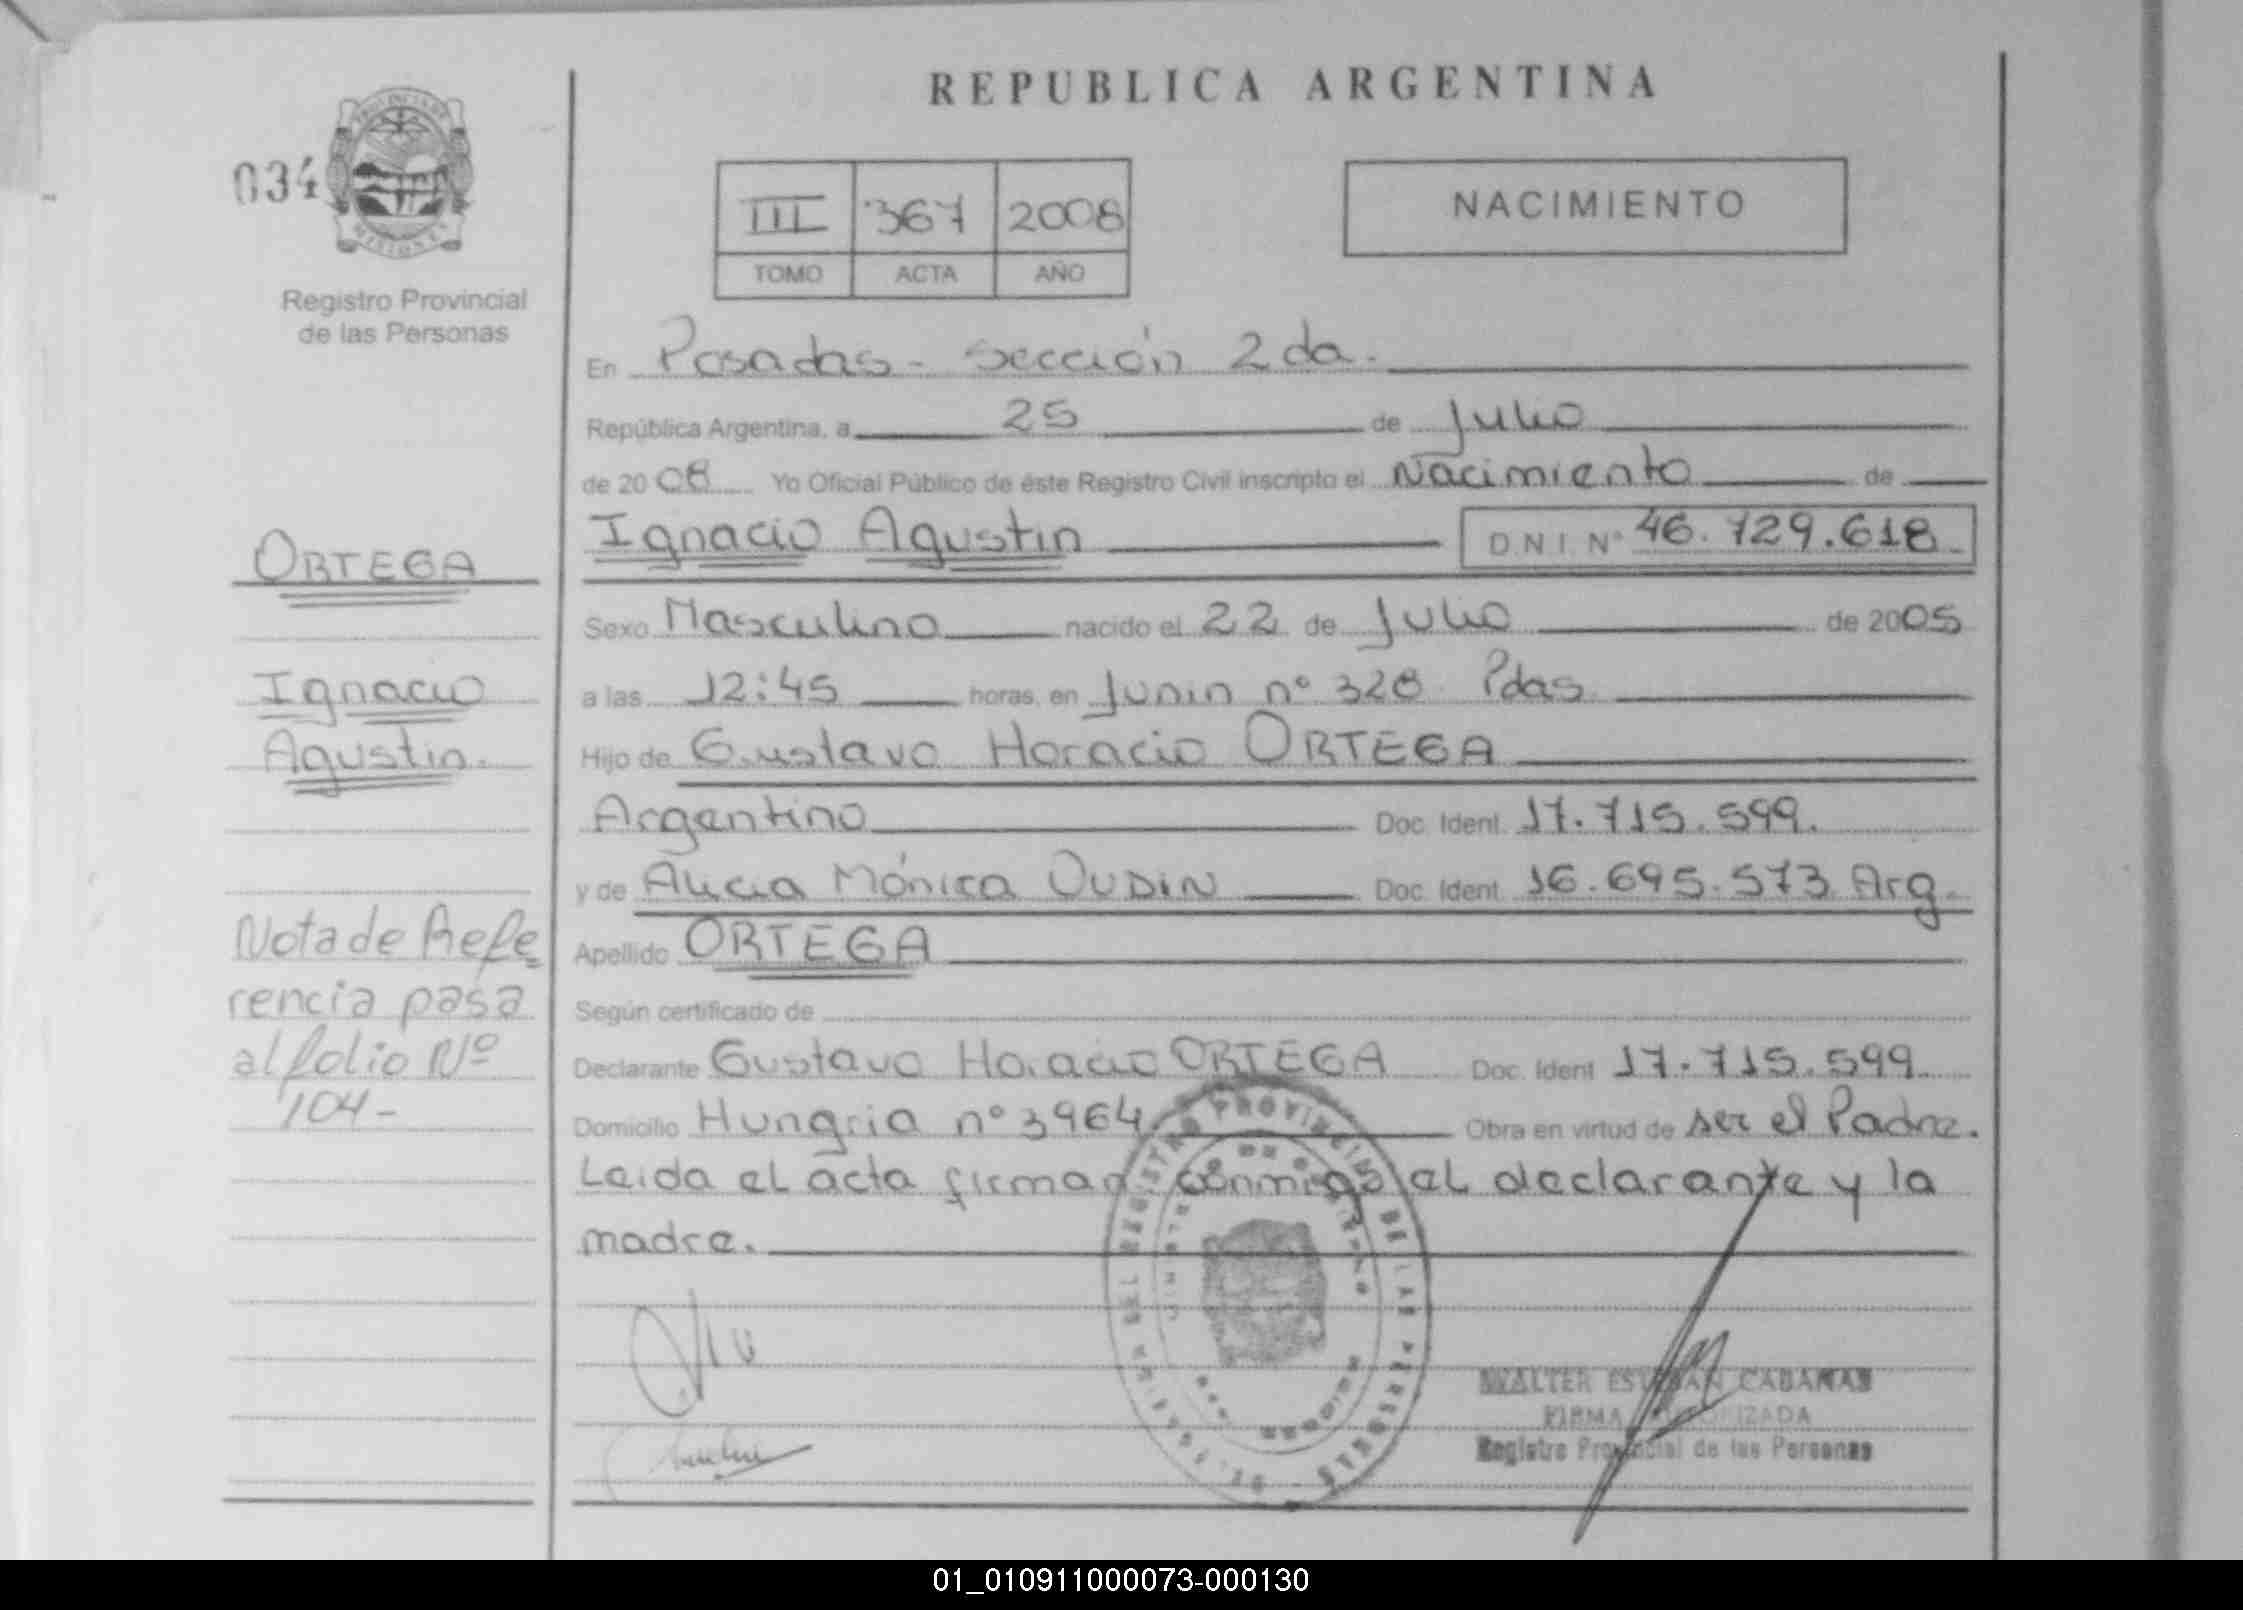 REPUBLICA ARGENTINA
034
PROVINCIA DE
MISIONES
Registro Provincial
de las Personas
III 367 2008
TOMO ACTA AÑO
NACIMIENTO
En Posadas - Sección 2da.
República Argentina, a 25 de Julio
de 2008 Yo Oficial Público de éste Registro Civil inscripto el Nacimiento de
Ignacio Agustin D N I Nº 46.729.618
Sexo Masculino nacido el 22 de Julio de 2005
a las 12:45 horas, en Junin nº 328 Pdas.
Hijo de Gustavo Horacio ORTEGA
Argentino Doc. Ident. 17.715.599.
y de Alicia Mónica OUDIN Doc. Ident. 16.695.573 Arg.
Apellido ORTEGA
Según certificado de
Declarante Gustavo Horacio ORTEGA Doc. Ident 17.715.599
Domicilio Hungria nº 3964 Obra en virtud de ser el Padre.
Leida el acta firman conmigo el declarante y la
madre.
ORTEGA
Ignacio
Agustin.
Nota de Refe
rencia pasa
al folio Nº
104-
REGISTRO PROVINCIAL DE LAS PERSONAS
WALTER ESTEBAN CABAÑAS
FIRMA AUTORIZADA
Registro Provincial de las Personas
01_010911000073-000130